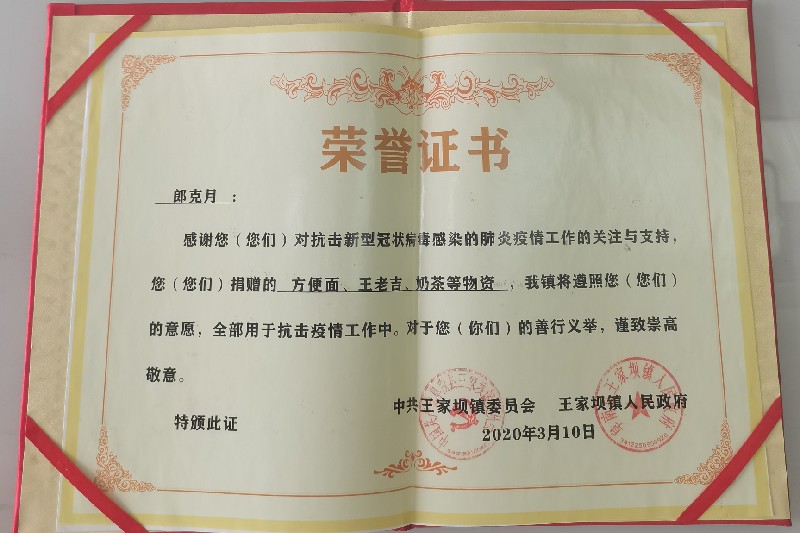 荣誉证书
郎克月：
感谢您（您们）对抗击新型冠状病毒感染的肺炎疫情工作的关注与支持，
您（您们）捐赠的 方便面、王老吉、奶茶等物资 ，我镇将遵照您（您们）
的意愿，全部用于抗击疫情工作中。对于您（你们）的善行义举，谨致崇高
敬意。
特颁此证
中共王家坝镇委员会 王家坝镇人民政府
2020年3月10日